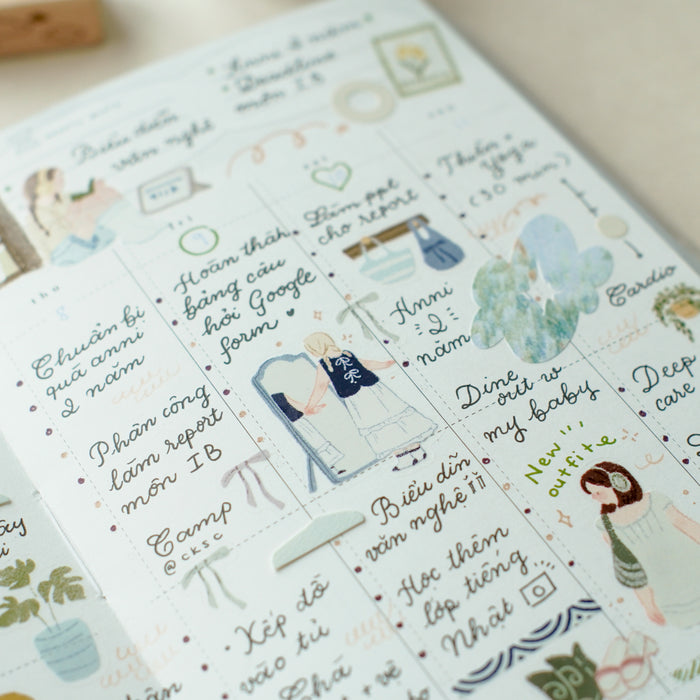 Anni 2 năm
Deadline
môn IB
Biểu diễn
văn nghệ
thu
8
Chuẩn bị
quà anni
2 năm
Phân công
làm report
môn IB
Camp
@cksc
Hoàn thành
bảng câu
hỏi Google
form
Làm ppt
cho report
Anni
2
năm
Dine
out w
my baby
Biểu diễn
văn nghệ
Học thêm
lớp tiếng
Nhật
Xếp đồ
vào tủ
+ vẽ
Thiền +
Yoga
(30 min)
Cardio
Deep
care
New
outfit